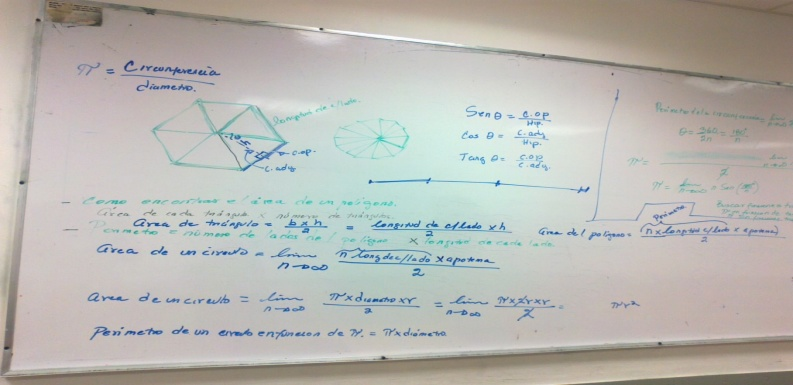 π = Circunferencia
diametro.
longitud de c/lado.
20
c.op.
c.ady.
Sen θ = c.op / Hip.
Cos θ = c.ady / Hip.
Tang θ = c.op / c.ady.
Perimetro de la circunferencia = lim
θ = 360/2n = 180/n
π = lim
2
π = lim n→∞ n Sen
- Como encontrar el área de un poligono.
área de cada triángulo x número de triángulos.
Area de triángulo = b x h / 2 = longitud de c/lado x h / 2
- Perimetro = número de lados del poligono x longitud de cada lado
Perimetro
área del poligono = (n x longitud c/lado x apotema) / 2
área de un circulo = lim n→∞ n long de c/lado x apotema / 2
área de un circulo = lim n→∞ π x diametro x r / 2 = lim n→∞ π x 2r x r / 2 = πr²
Perimetro de un circulo en funcion de π. = π x diámetro